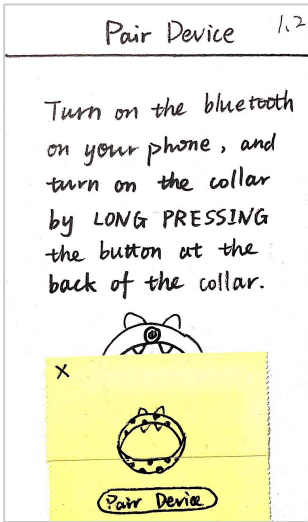 Pair Device 1.2
Turn on the bluetooth
on your phone, and
turn on the collar
by LONG PRESSING
the button at the
back of the collar.
X
Pair Device